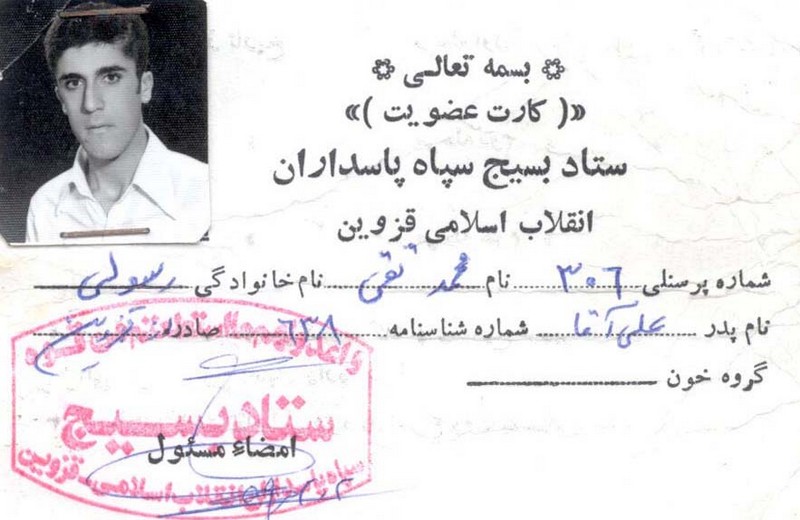 بسمه تعالی
«( کارت عضویت )»
ستاد بسیج سپاه پاسداران
انقلاب اسلامی قزوین
شماره پرسنلی ۳۰۶ نام محمد تقی نام خانوادگی رسولی
نام پدر علی آقا شماره شناسنامه ۶۳۸ صادره قزوین
گروه خون
ستاد بسیج
امضاء مسئول
سپاه پاسداران انقلاب اسلامی قزوین